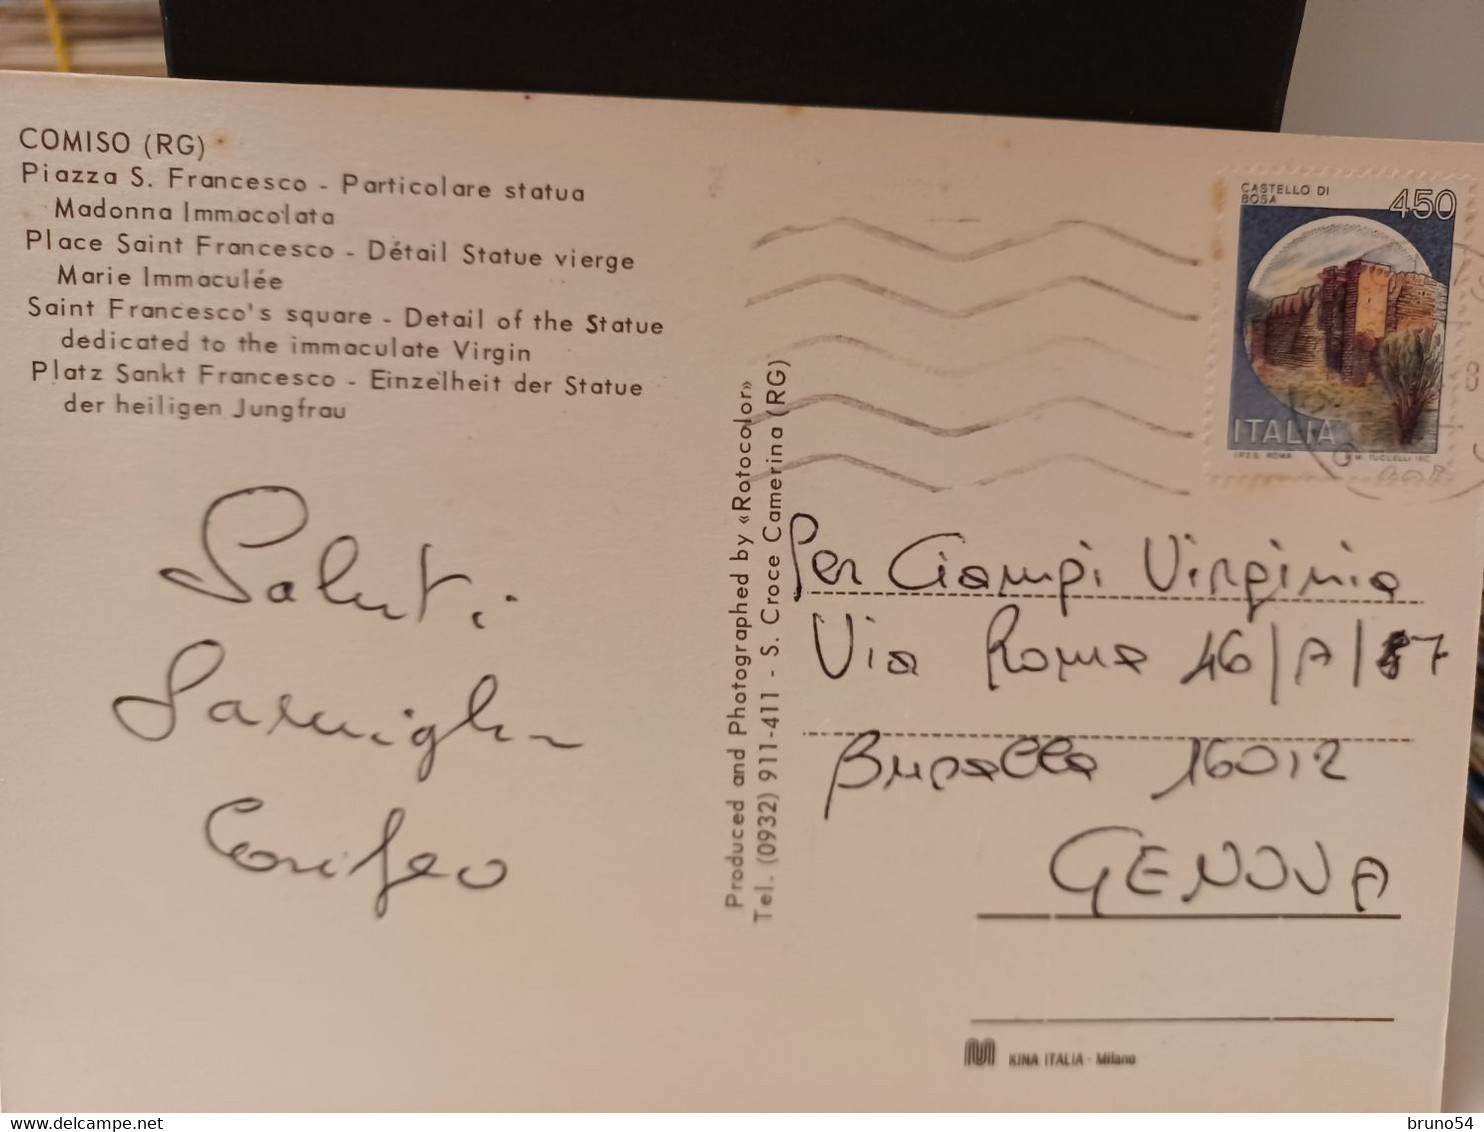 COMISO (RG)
Piazza S. Francesco - Particolare statua
Madonna Immacolata
Place Saint Francesco - Détail Statue vierge
Marie Immaculée
Saint Francesco's square - Detail of the Statue
dedicated to the immaculate Virgin
Platz Sankt Francesco - Einzelheit der Statue
der heiligen Jungfrau
Saluti
Famiglia
Produced and Photographed by «Rotocolor»
Tel. (0932) 911-411 - S. Croce Camerina (RG)
CASTELLO DI
BOSA
450
ITALIA
I.P.Z.S. ROMA
Per Ciampi Virginia
Via Roma 46/A/
Busalla 16012
GENOVA
KINA ITALIA - Milano
bruno54